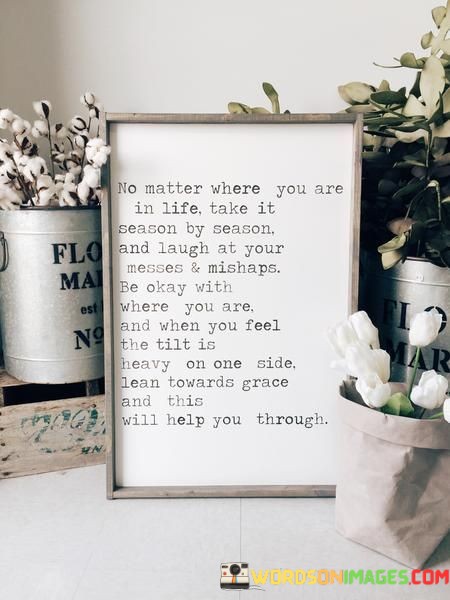 No matter where you are
in life, take it
season by season,
and laugh at your
messes & mishaps.
Be okay with
where you are,
and when you feel
the tilt is
heavy on one side,
lean towards grace
and this
will help you through.
FLO
MAR
est
No
FLO
MAR
WORDSONIMAGES.COM